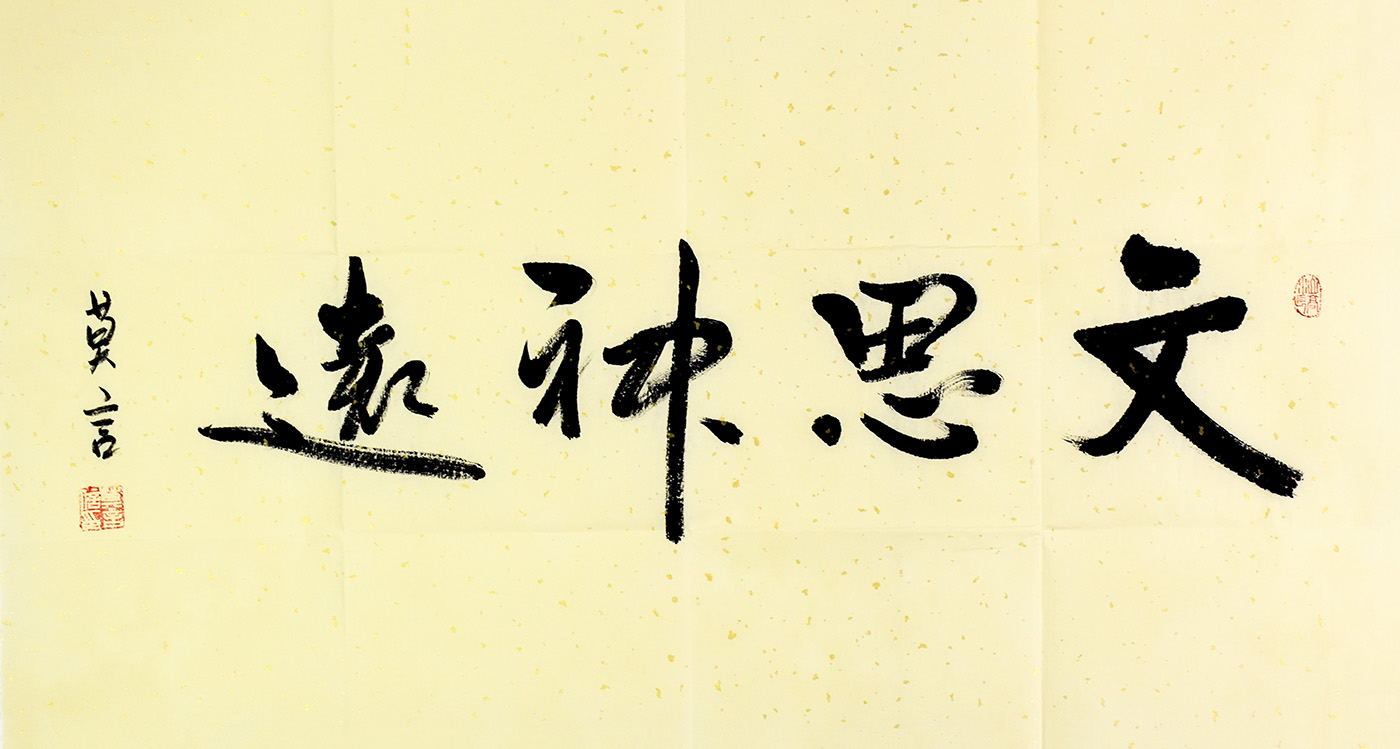 文思神遠
莫言